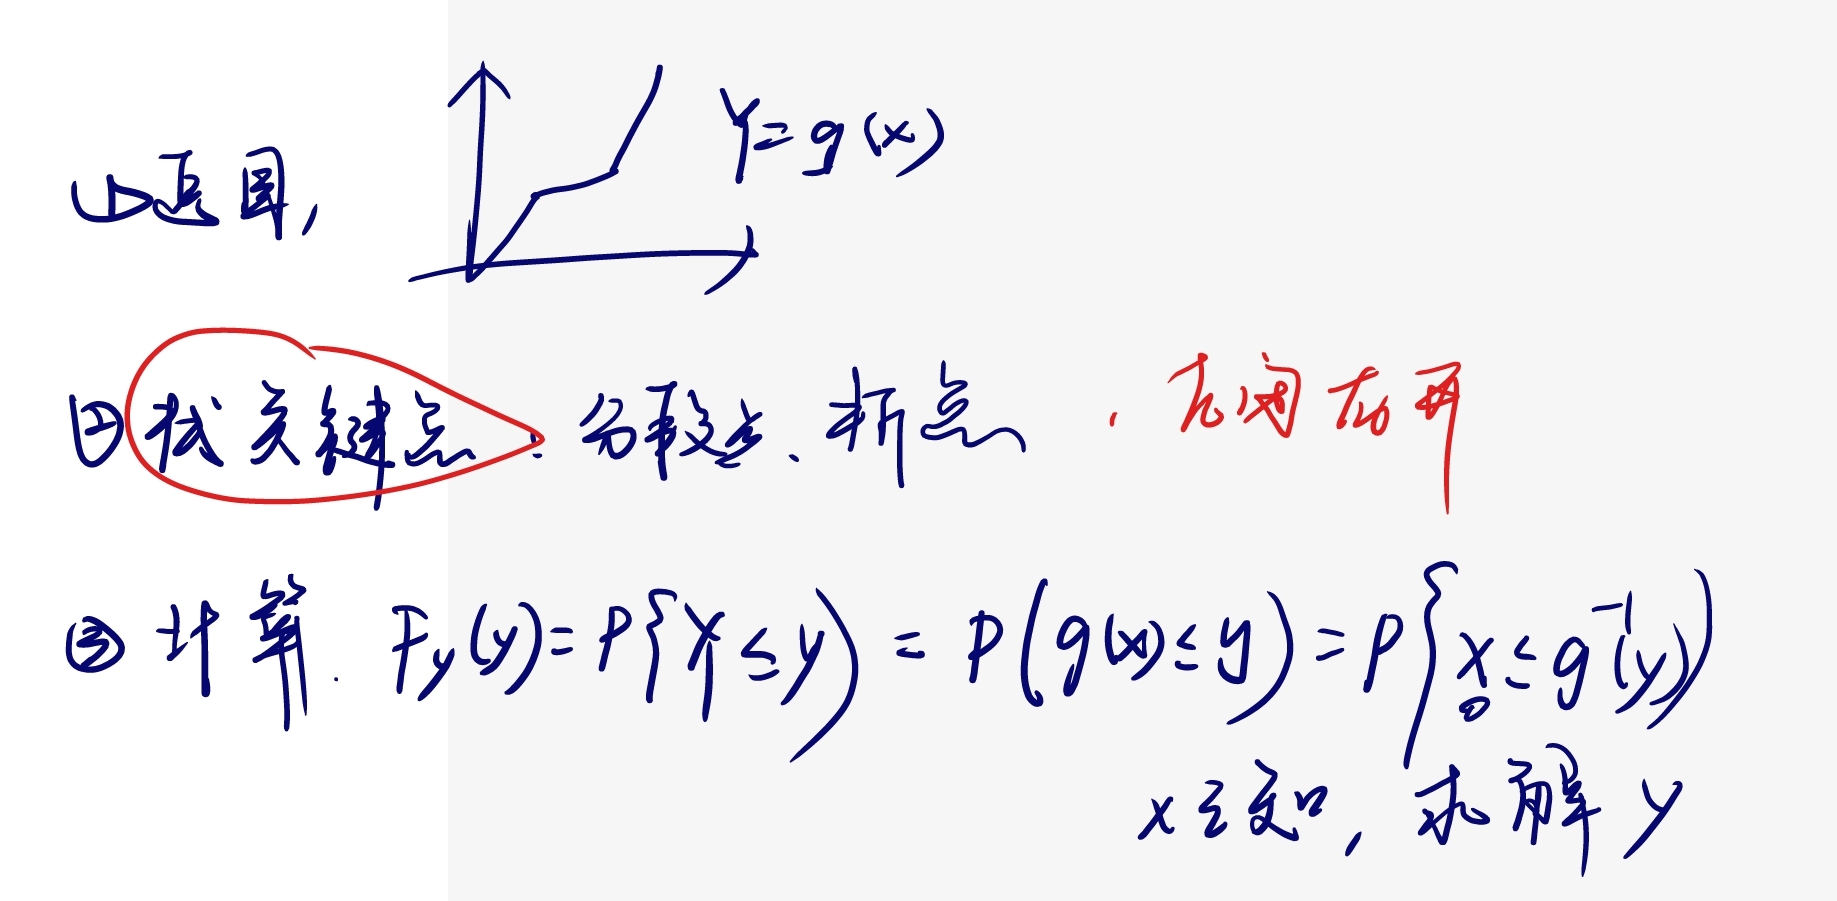 ① 画图, Y=g(x)
② 找关键点: 分段点、折点 . 左闭右开
③ 计算. Fy(y)=P{Y≤y) = P(g(x)≤y)=P{x≤g⁻¹(y))
x已知, 求解y